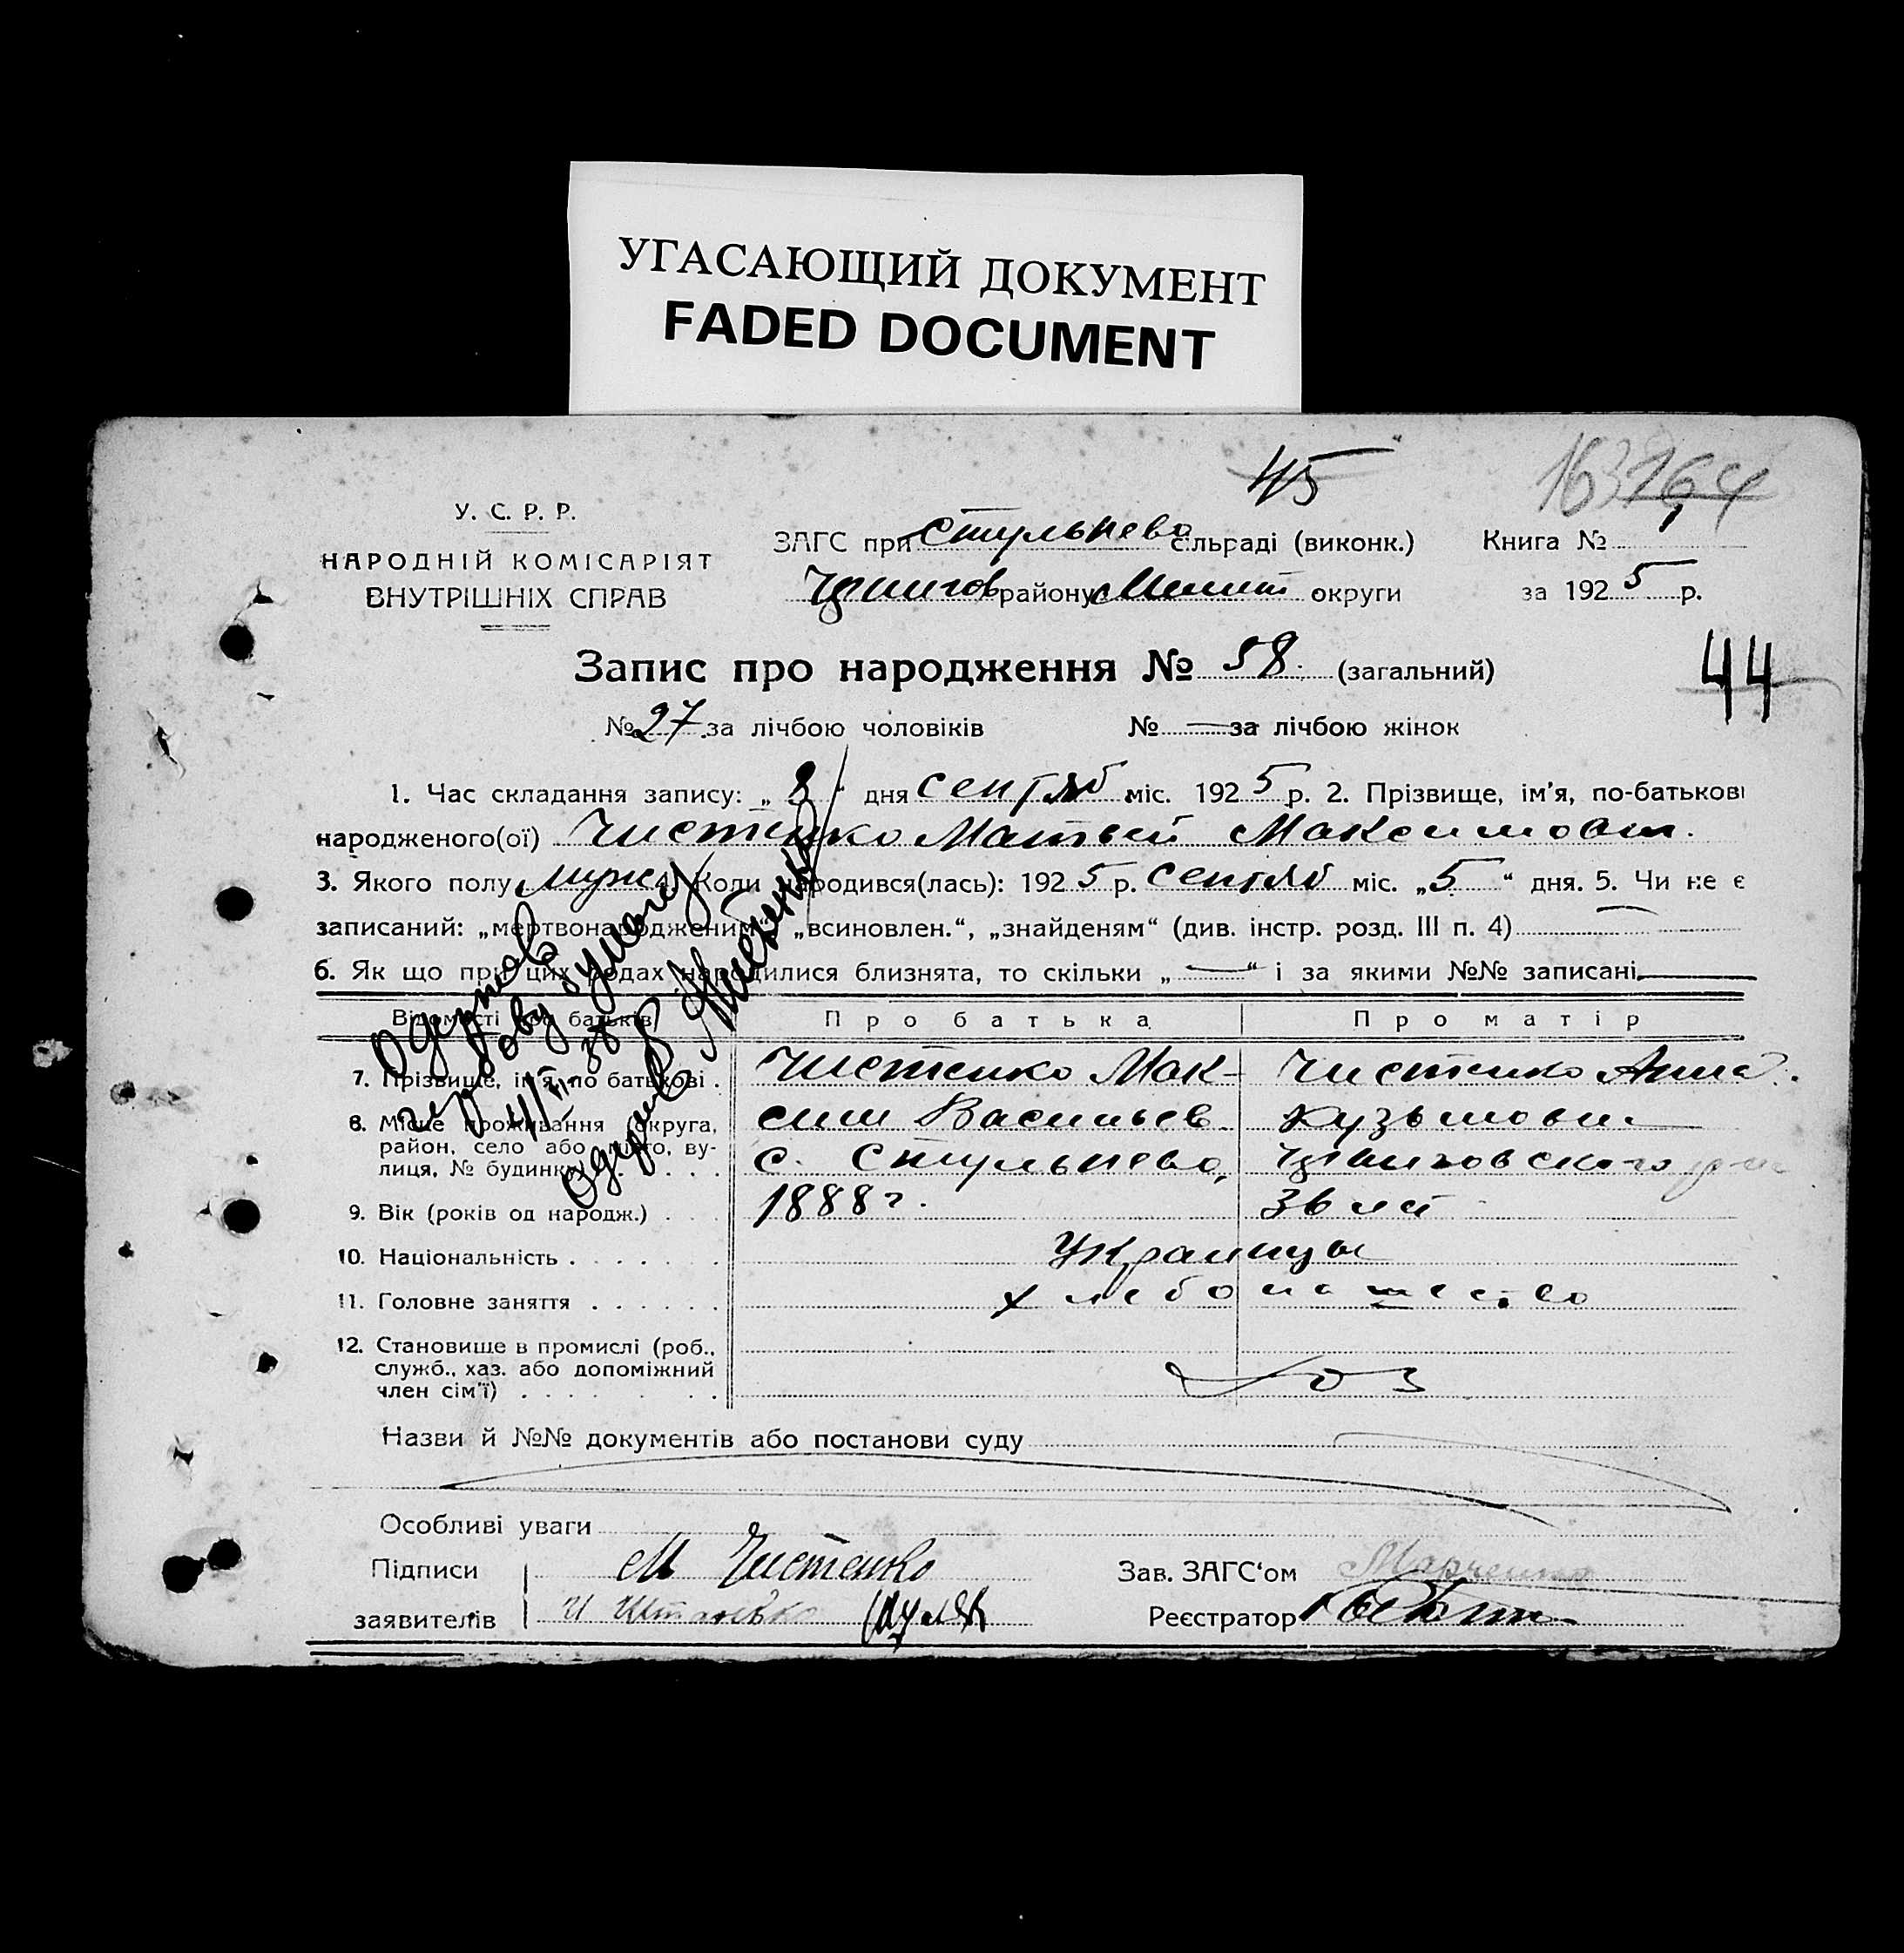 УГАСАЮЩИЙ ДОКУМЕНТ
FADED DOCUMENT
45
163 164
У. С. Р. Р.
НАРОДНІЙ КОМІСАРІЯТ
ВНУТРІШНІХ СПРАВ
ЗАГС при Стульнево сільраді (виконк.) Книга № 1
району Мелит округи за 1925 р.
Запис про народження № 58 (загальний)
44
№ 27 за лічбою чоловіків № — за лічбою жінок
1. Час складання запису: „ 8 “ дня сентяб міс. 1925 р. 2. Прізвище, ім'я, по-батькові
народженого(ої) Чистенко Матвей Максимович.
3. Якого полу муж 4. Коли народився(лась): 1925 р. сентяб міс. „5“ дня. 5. Чи не є
записаний: „мертвонародженим“, „всиновлен.“, „знайденям“ (див. інстр. розд. III п. 4) —
6. Як що при цих родах народилися близнята, то скільки „ — “ і за якими №№ записані
Відомості про батьків Про батька Про матір
7. Прізвище, ім'я, по батькові . Чистенко Мак- Чистенко Анна
8. Місце проживання (округа, сим Васильев. Кузьмовн
район, село або місто, ву-
лиця, № будинку) . . . . с. Стульнево,
9. Вік (років од народж.) . . . 1888 г. 36 лет
10. Національність . . . . . . . Украинцы
11. Головне заняття . . . . . . хлебопашество
12. Становище в промислі (роб.,
служб., хаз. або допоміжний
член сім'ї) . . . . . . . . . Хоз
Назви й №№ документів або постанови суду
Особливі уваги
Підписи М Чистенко Зав. ЗАГС'ом Марченко
заявителів Реєстратор